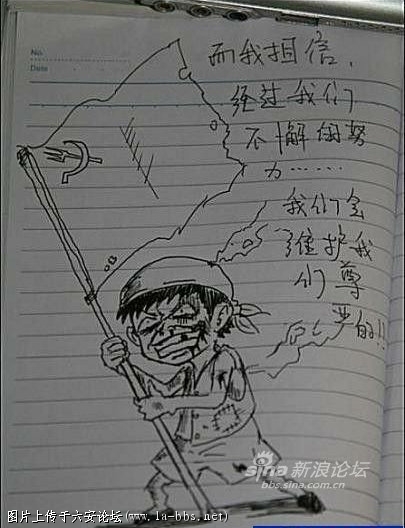 No.
Date
而我相信，
经过我们
不懈的努
力……
我们会
维护我
们尊
严的!!
sina 新浪论坛
图片上传于六安论坛(www.la-bbs.net)